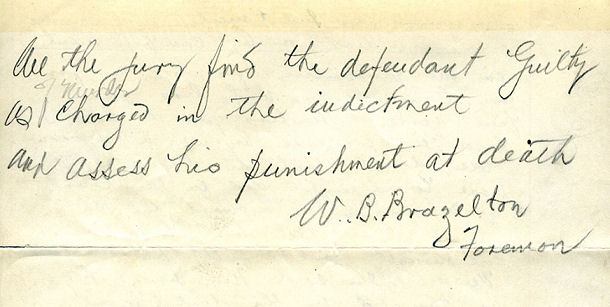 We the jury find the defendant Guilty
of Murder
as charged in the indictment
and assess his punishment at death
W. B. Brazelton
Foreman